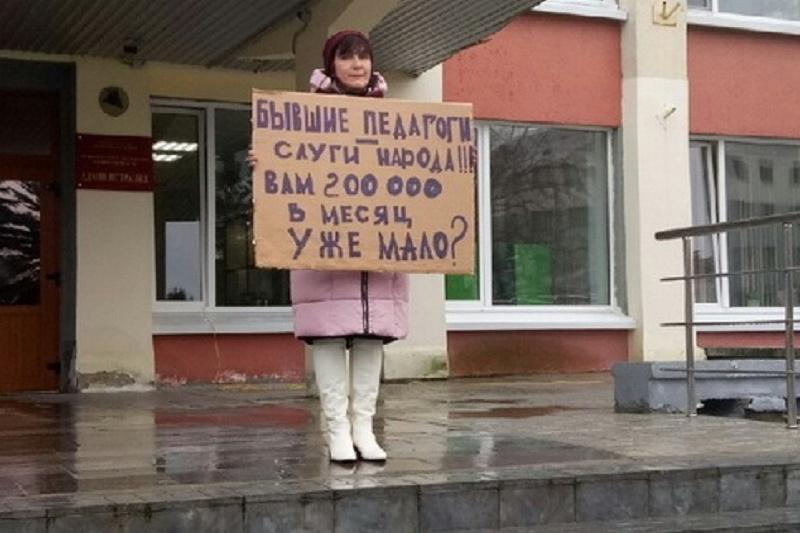 БЫВШИЕ ПЕДАГОГИ
СЛУГИ НАРОДА!!!
ВАМ 200 000
В МЕСЯЦ
УЖЕ МАЛО?
АДМИНИСТРАЦИЯ